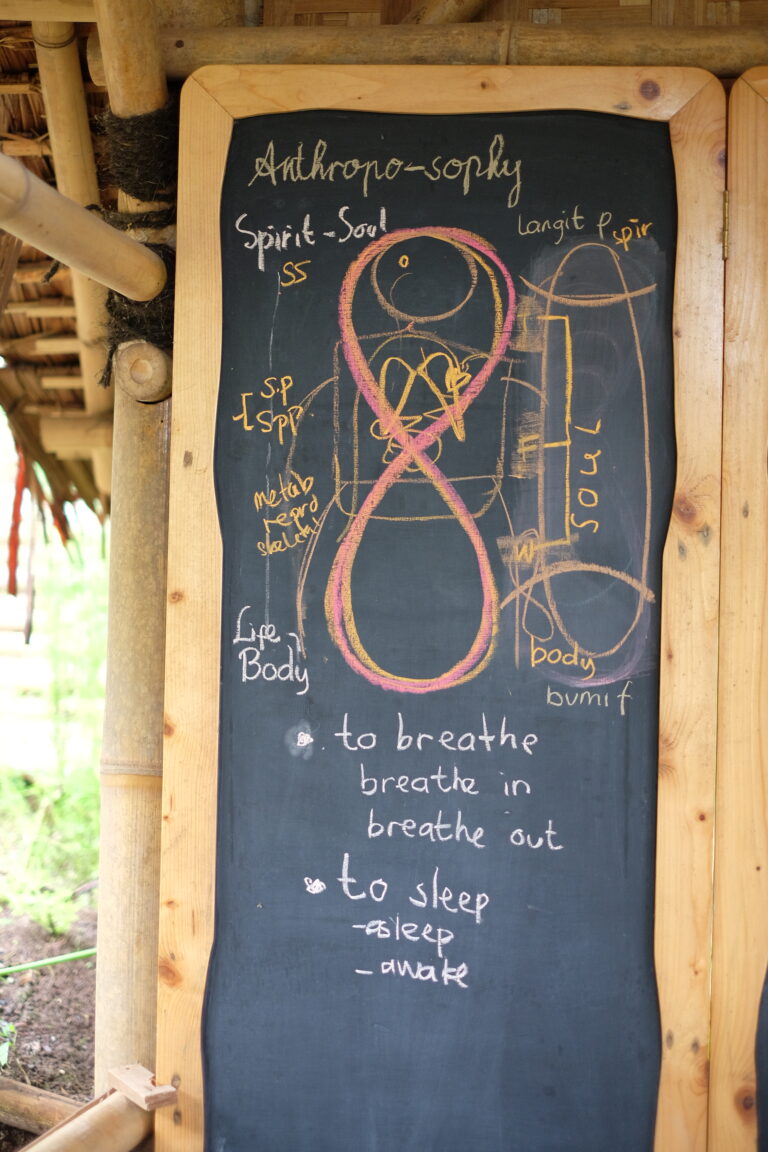 Anthropo-sophy
Spirit-Soul
SS
Langit f
spir
S.P
SPP
metab
repro
skeletal
F
W
SOUL
Life
Body
body
bumi f
to breathe
breathe in
breathe out
to sleep
-asleep
- awake